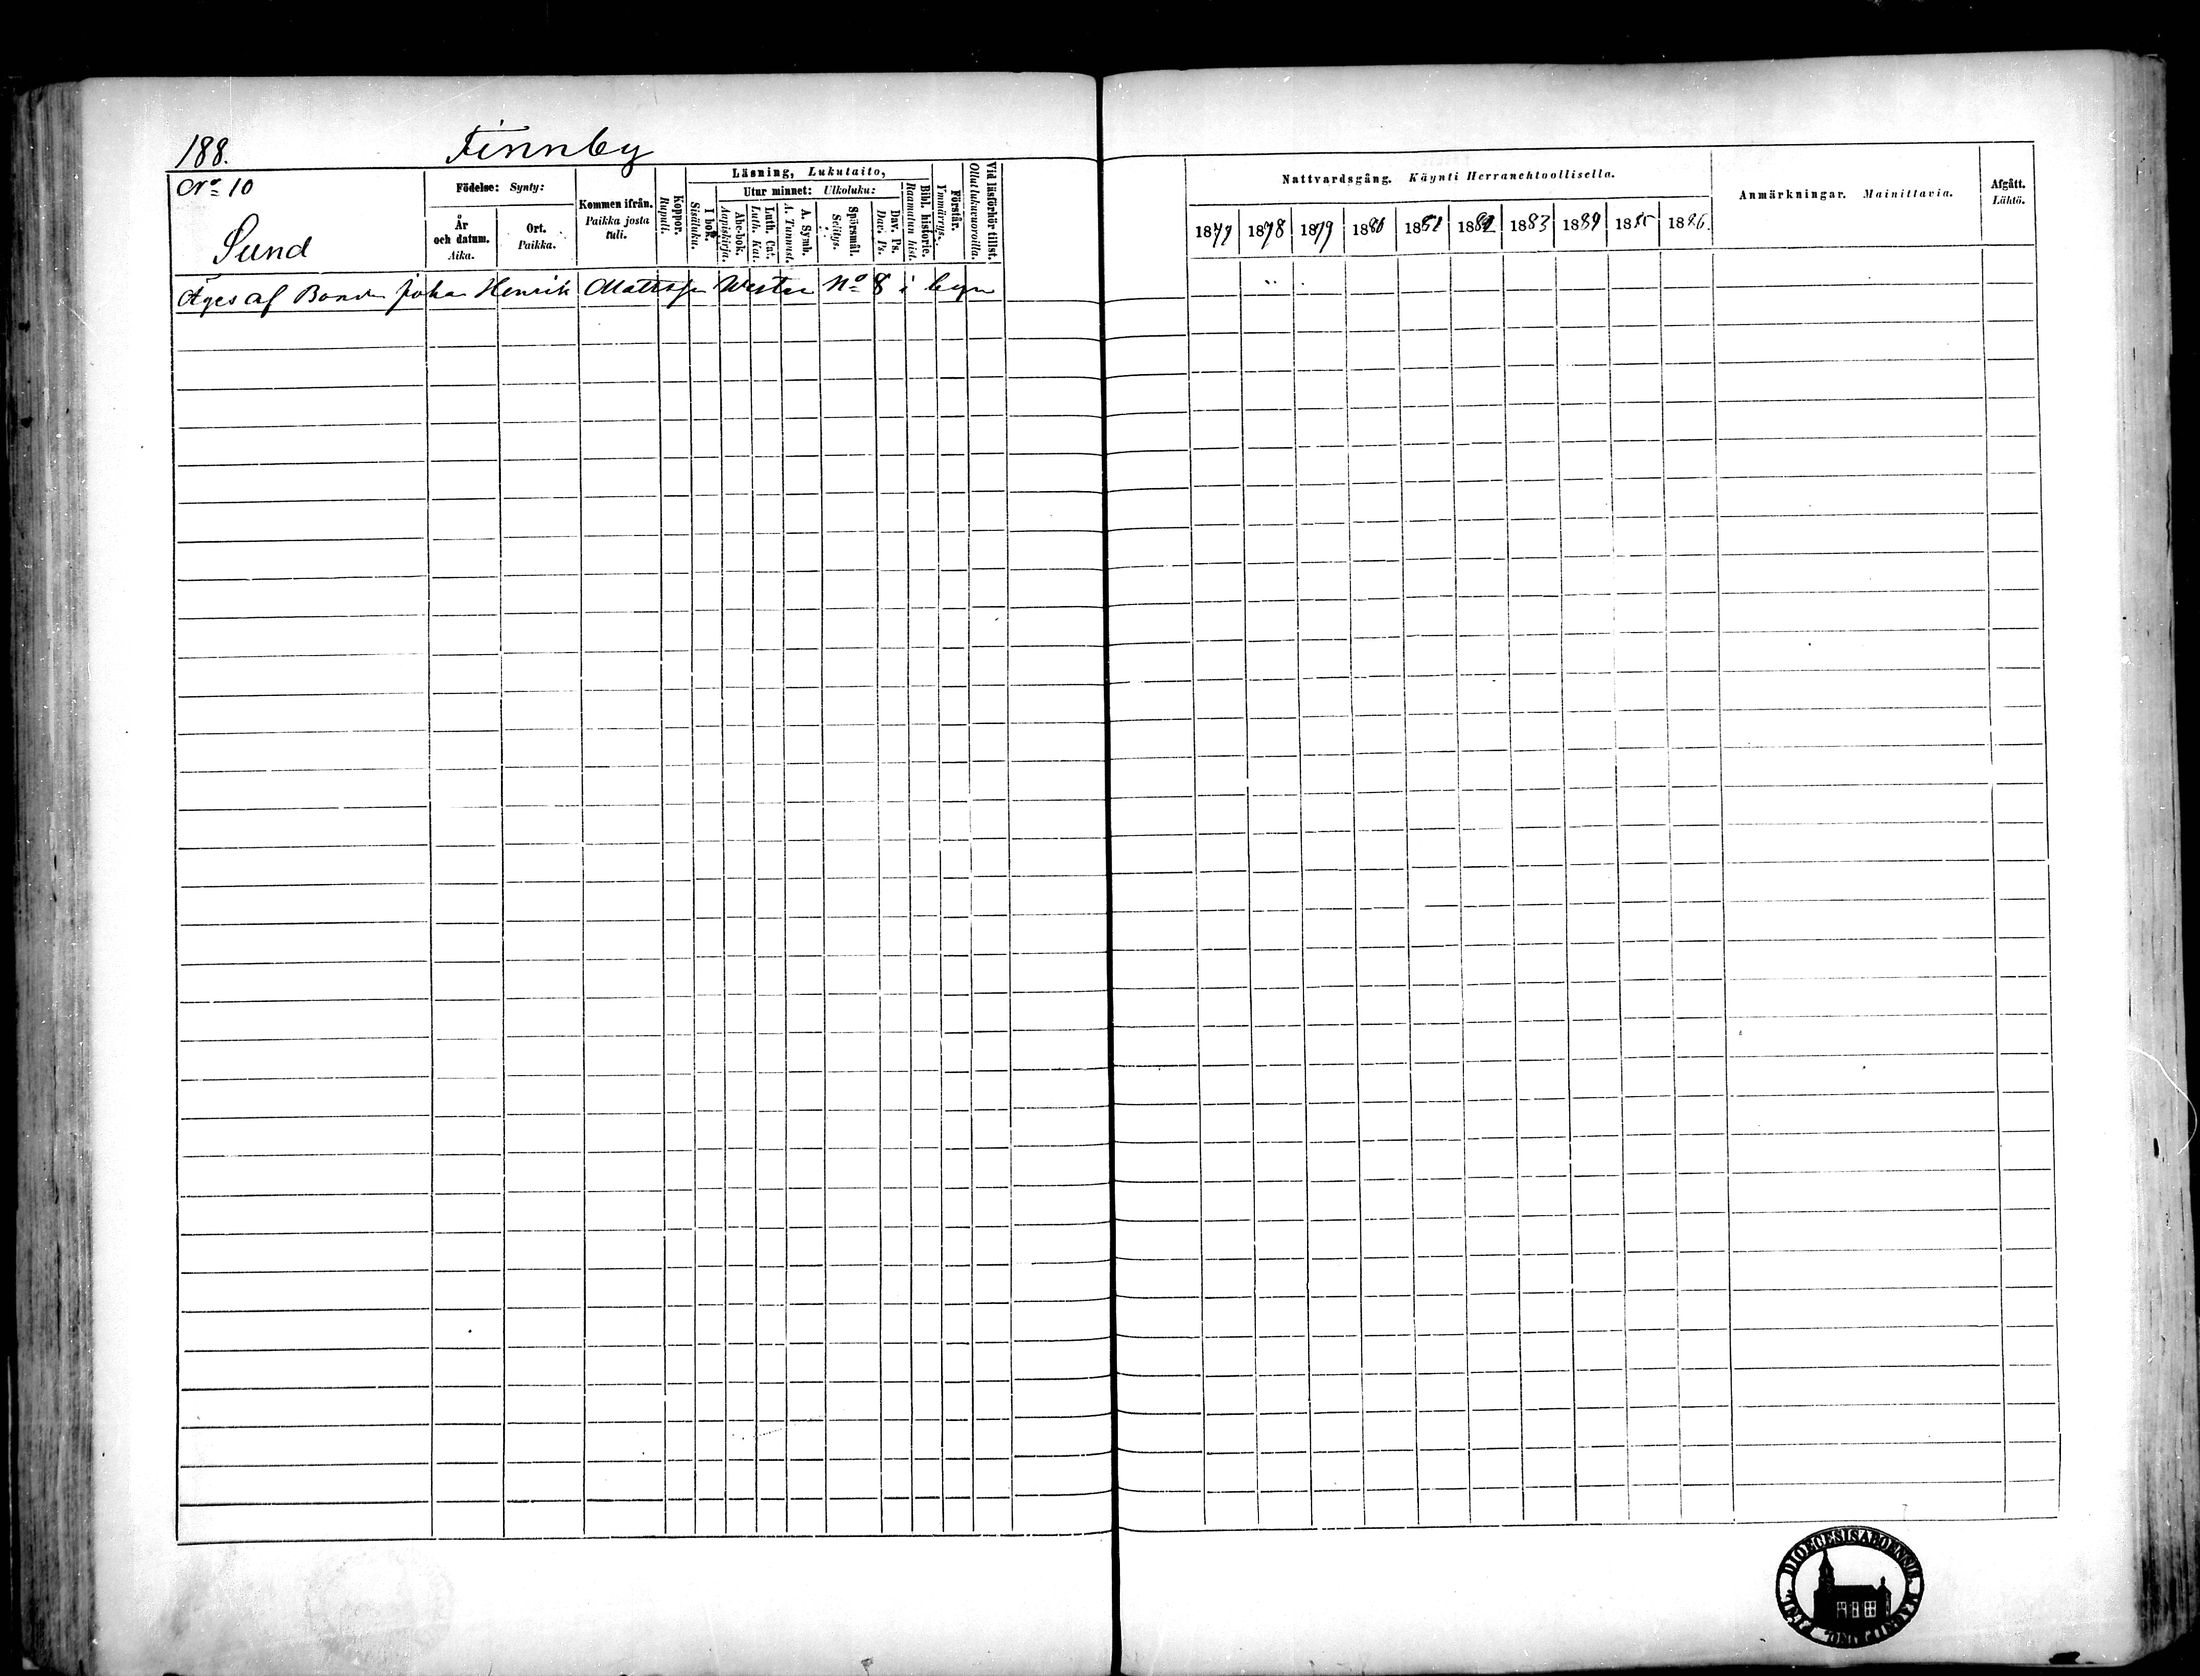 188.
Finnby
No 10
Sund
Födelse: Synty:
År och datum. Aika.
Ort. Paikka.
Kommen ifrån. Paikka josta tuli.
Koppor. Rupuli.
Läsning, Lukutaito,
I bok. Sisäluku.
Utur minnet: Ulkoluku:
Abc-bok. Aapiskirja.
Luth. Cat. Luth. Kat.
A. Symb. A. Tunnust.
Spörsmål. Selitys.
Dav. Ps. Dav. Ps.
Bibl. historie. Raamatun hist.
Förstår. Ymmärrys.
Vid läsförhör tillst. Ollut lukuvuoroilla.
Nattvardsgång. Käynti Herranehtoollisella.
1877 1878 1879 1880 1881 1882 1883 1884 1885 1886.
Anmärkningar. Mainittavia.
Afgått. Lähtö.
Äges af Bonden Johan Henrik Mattsson Wester No 8 i byn
DIOECESIS ABOENSIS